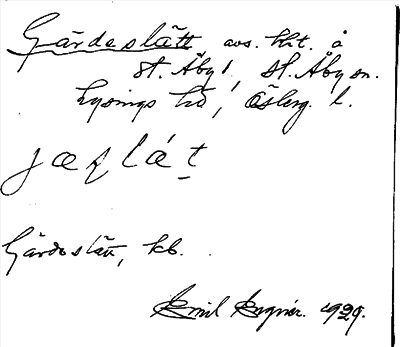 Gärdeslätt avs. till. å
St. Åby 1, St. Åby sn.
Lysings hd, Österg. l.
Gärdeslätt, kb.
Emil Engnér. 1929.